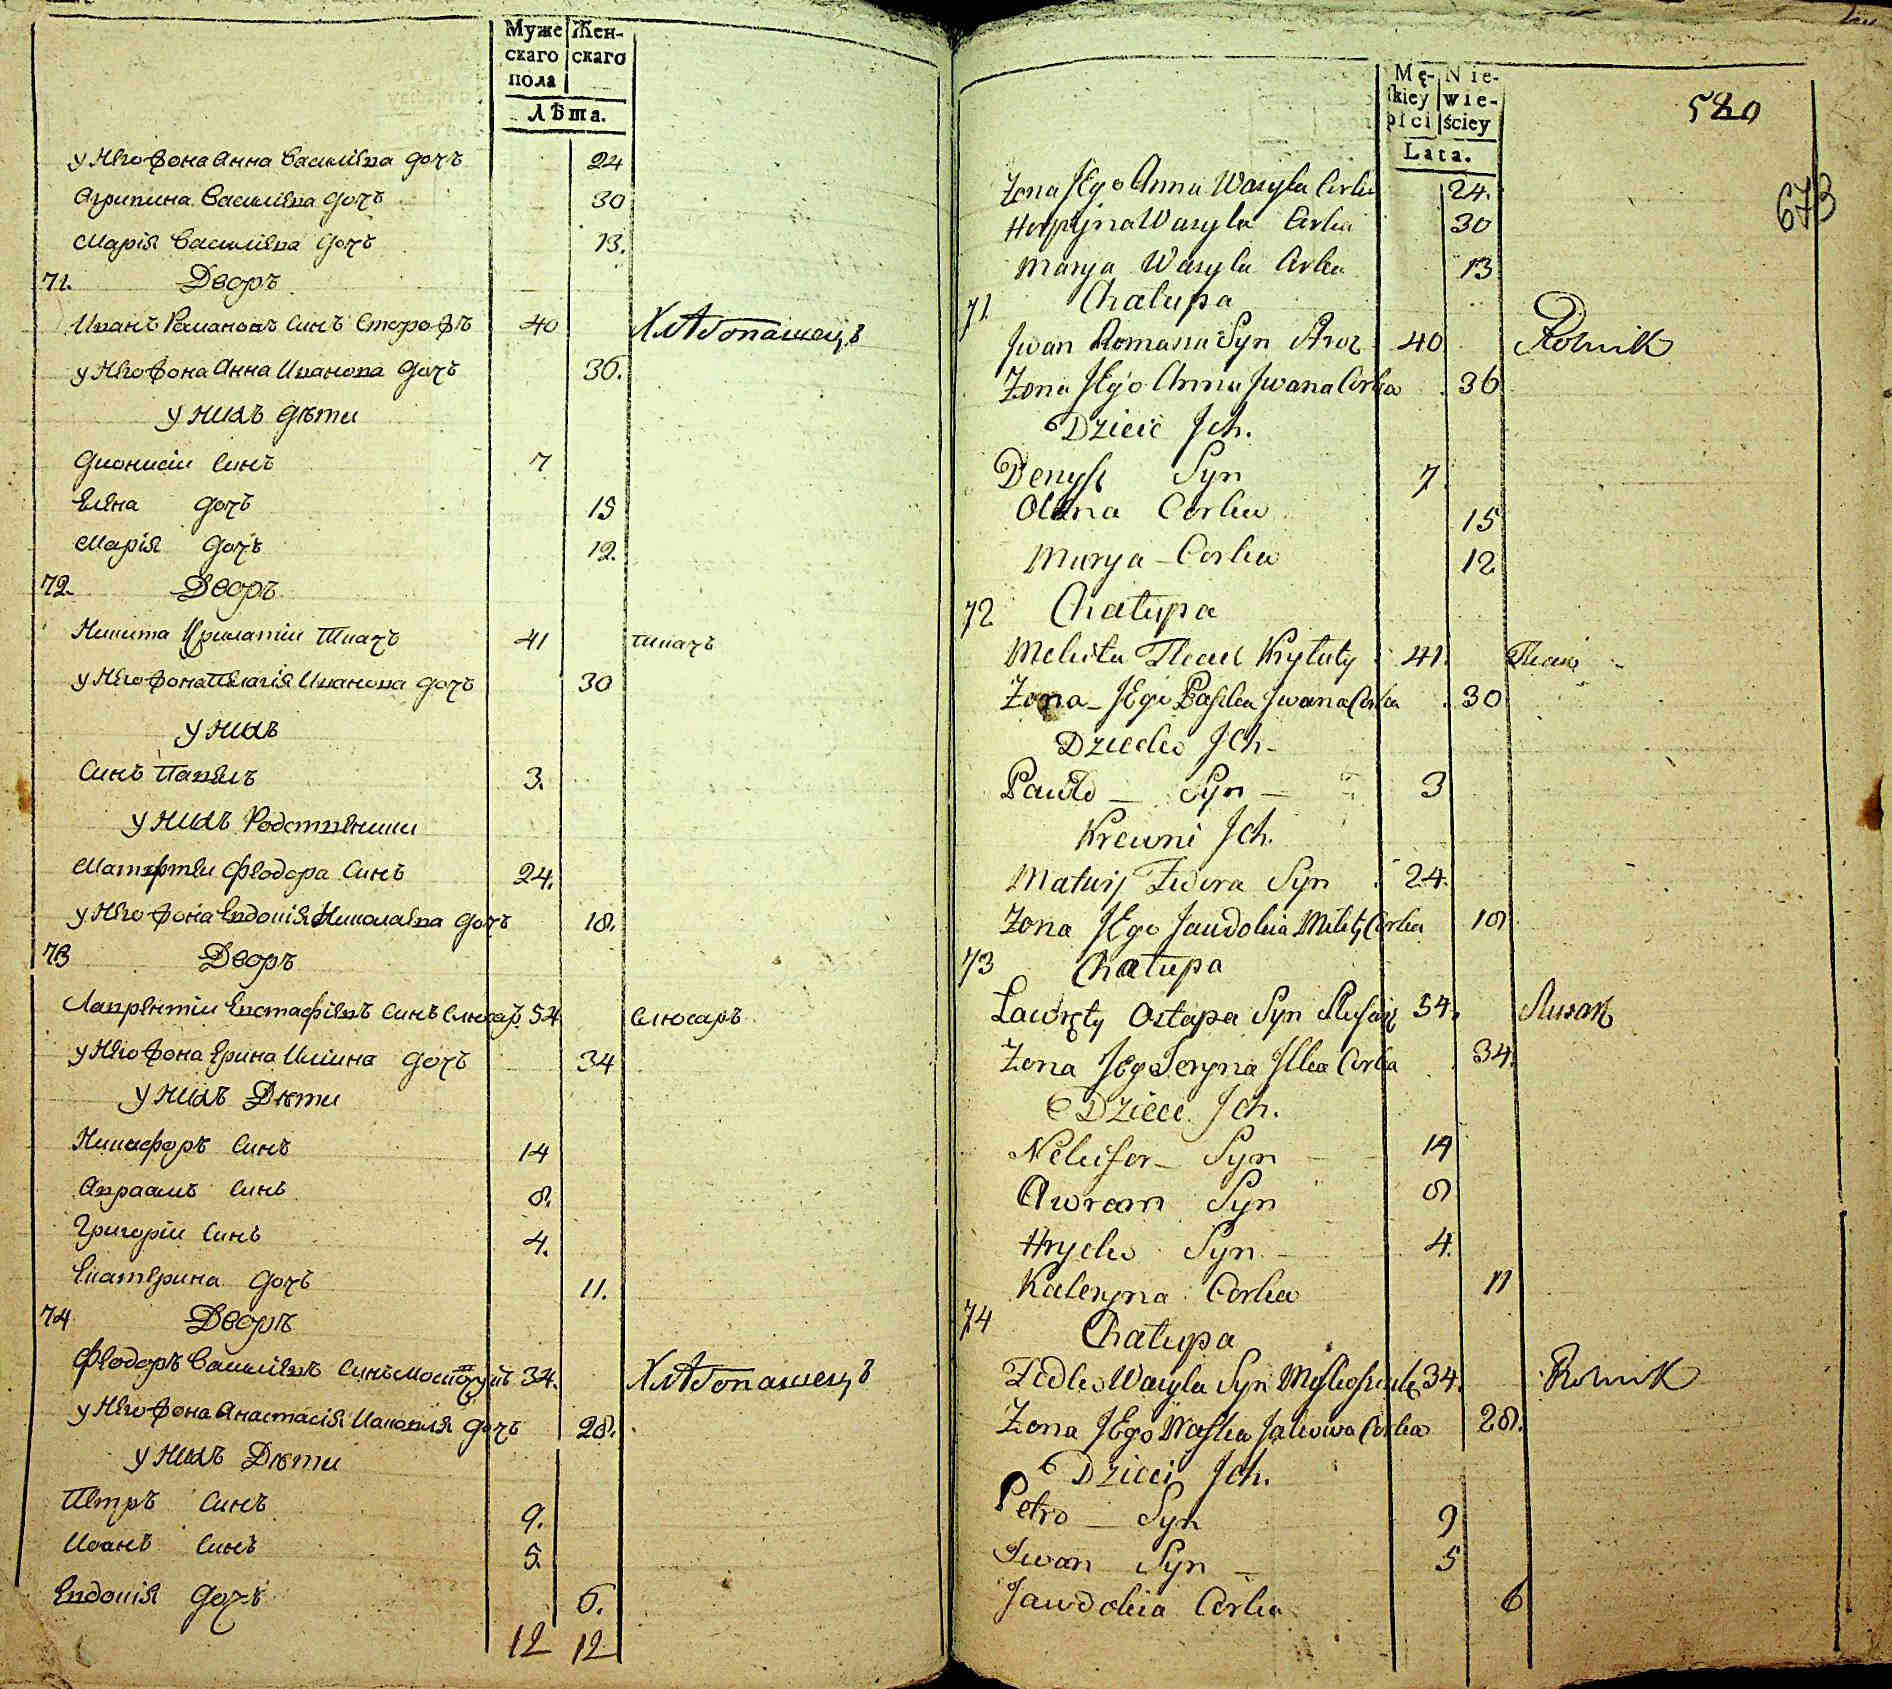 Муже Жен-
скаго скаго
пола
Лѣта.
у Него Жона Анна Василіева дочъ 24
Агрипина Василіева дочъ 30
Марія Василіева дочъ 13.
71. Дворъ
Иванъ Романовъ Синъ Сторожъ 40 Хлѣбопашецъ
у Него Жона Анна Иванова дочъ 36.
у нихъ дѣти
Дионисіи Синъ 7
Елена дочъ 15
Марія дочъ 12.
72. Дворъ
Никита Крилатіи Ткачъ 41 ткачъ
у Него Жона Пелагія Иванова дочъ 30
у нихъ
Синъ Павелъ 3.
у нихъ Родственики
Матфтеи Феодора Синъ 24.
у Него Жона Евдокія Николаева дочъ 18.
73 Дворъ
Лаврентіи Евстафіевъ Синъ Слюсаръ 54 слюсаръ
у Него Жона Ерина Илиина дочъ 34
у нихъ Дѣти
Никифоръ Синъ 14
Авраамъ Синъ 8.
Григоріи Синъ 4.
Екатерина дочъ 11.
74 Дворъ
Феодоръ Василіевъ Синъ 34. Хлѣбопашецъ
у Него Жона Анастасія Иаковля дочъ 28.
у нихъ Дѣти
Петръ Синъ 9.
Иоанъ Синъ 5.
Евдокія дочъ 6.
12 12
Mę- Nie-
skiey wie-
płci ściey
Lata.
580
673
Zona JEgo Anna Wasyla Corka 24.
Horpyna Wasyla Corka 30
Marya Wasyla Corka 13
71 Chałupa
Jwan Romana Syn Stroz 40 Rolnik
Zona JEgo Anna Jwana Corka 36
Dzieic Jch.
Denysz Syn 7
Olena Corka 15
Marya Corka 12
72 Chałupa
Mekita Tkacz Kryłaty 41. Tkacz
Zona JEgo Paska Jwana Corka 30
Dziecko Jch
Pawło Syn 3
Krewni Jch.
Matwij Fedora Syn 24.
Zona JEgo Jawdokia Mikity Corka 18
73 Chałupa
Ławręty Ostapa Syn Slusarz 54. Slusarz
Zona JEgo Jeryna Jlka Corka 34.
Dzieci Jch.
Nekifor Syn 14
Awram Syn 8
Hryčko Syn 4.
Kateryna Corka 11
74 Chałupa
Fedko Wasyla Syn 34. Rolnik
Zona JEgo Naska Jakowa Corka 28.
Dzieci Jch.
Petro Syn 9
Jwan Syn 5
Jawdokia Corka 6